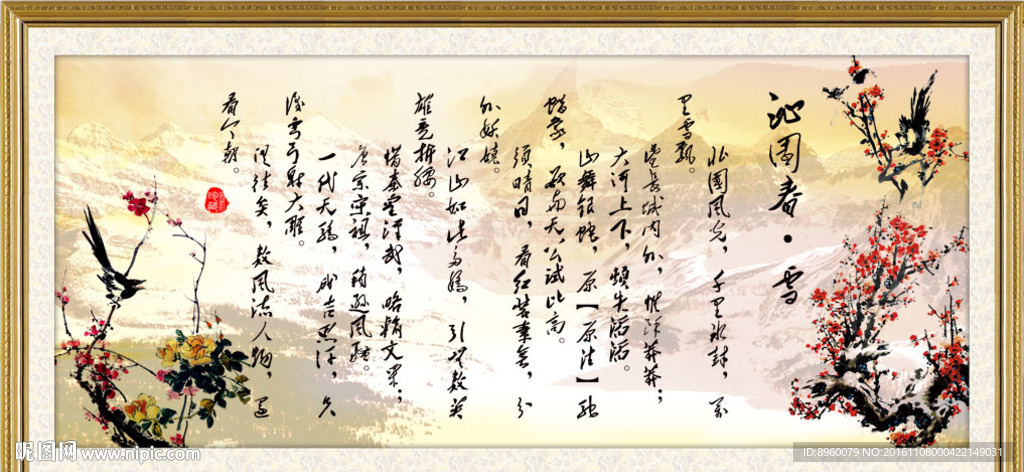 沁园春·雪
北国风光，千里冰封，万
里雪飘。
望长城内外，惟余莽莽；
大河上下，顿失滔滔。
山舞银蛇，原【原注】驰
蜡象，欲与天公试比高。
须晴日，看红装素裹，分
外妖娆。
江山如此多娇，引无数英
雄竞折腰。
惜秦皇汉武，略输文采；
唐宗宋祖，稍逊风骚。
一代天骄，成吉思汗，只
识弯弓射大雕。
俱往矣，数风流人物，还
看今朝。
昵图网 www.nipic.com
ID:8960079 NO:20161108000422149031